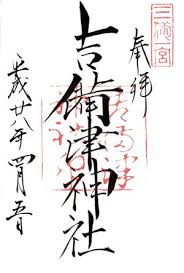 三備一宮
奉拝
吉備津神社
平成廿八年四月五日